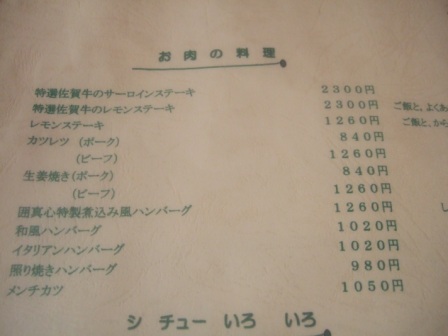 お肉の料理
特選佐賀牛のサーロインステーキ 2300円
特選佐賀牛のレモンステーキ 2300円 ご飯と、よくあ
レモンステーキ 1260円 ご飯と、から
カツレツ (ポーク) 840円
(ビーフ) 1260円
生姜焼き(ポーク) 840円
(ビーフ) 1260円
囲真心特製煮込み風ハンバーグ 1260円 し
和風ハンバーグ 1020円
イタリアンハンバーグ 1020円
照り焼きハンバーグ 980円
メンチカツ 1050円
シチューいろいろ